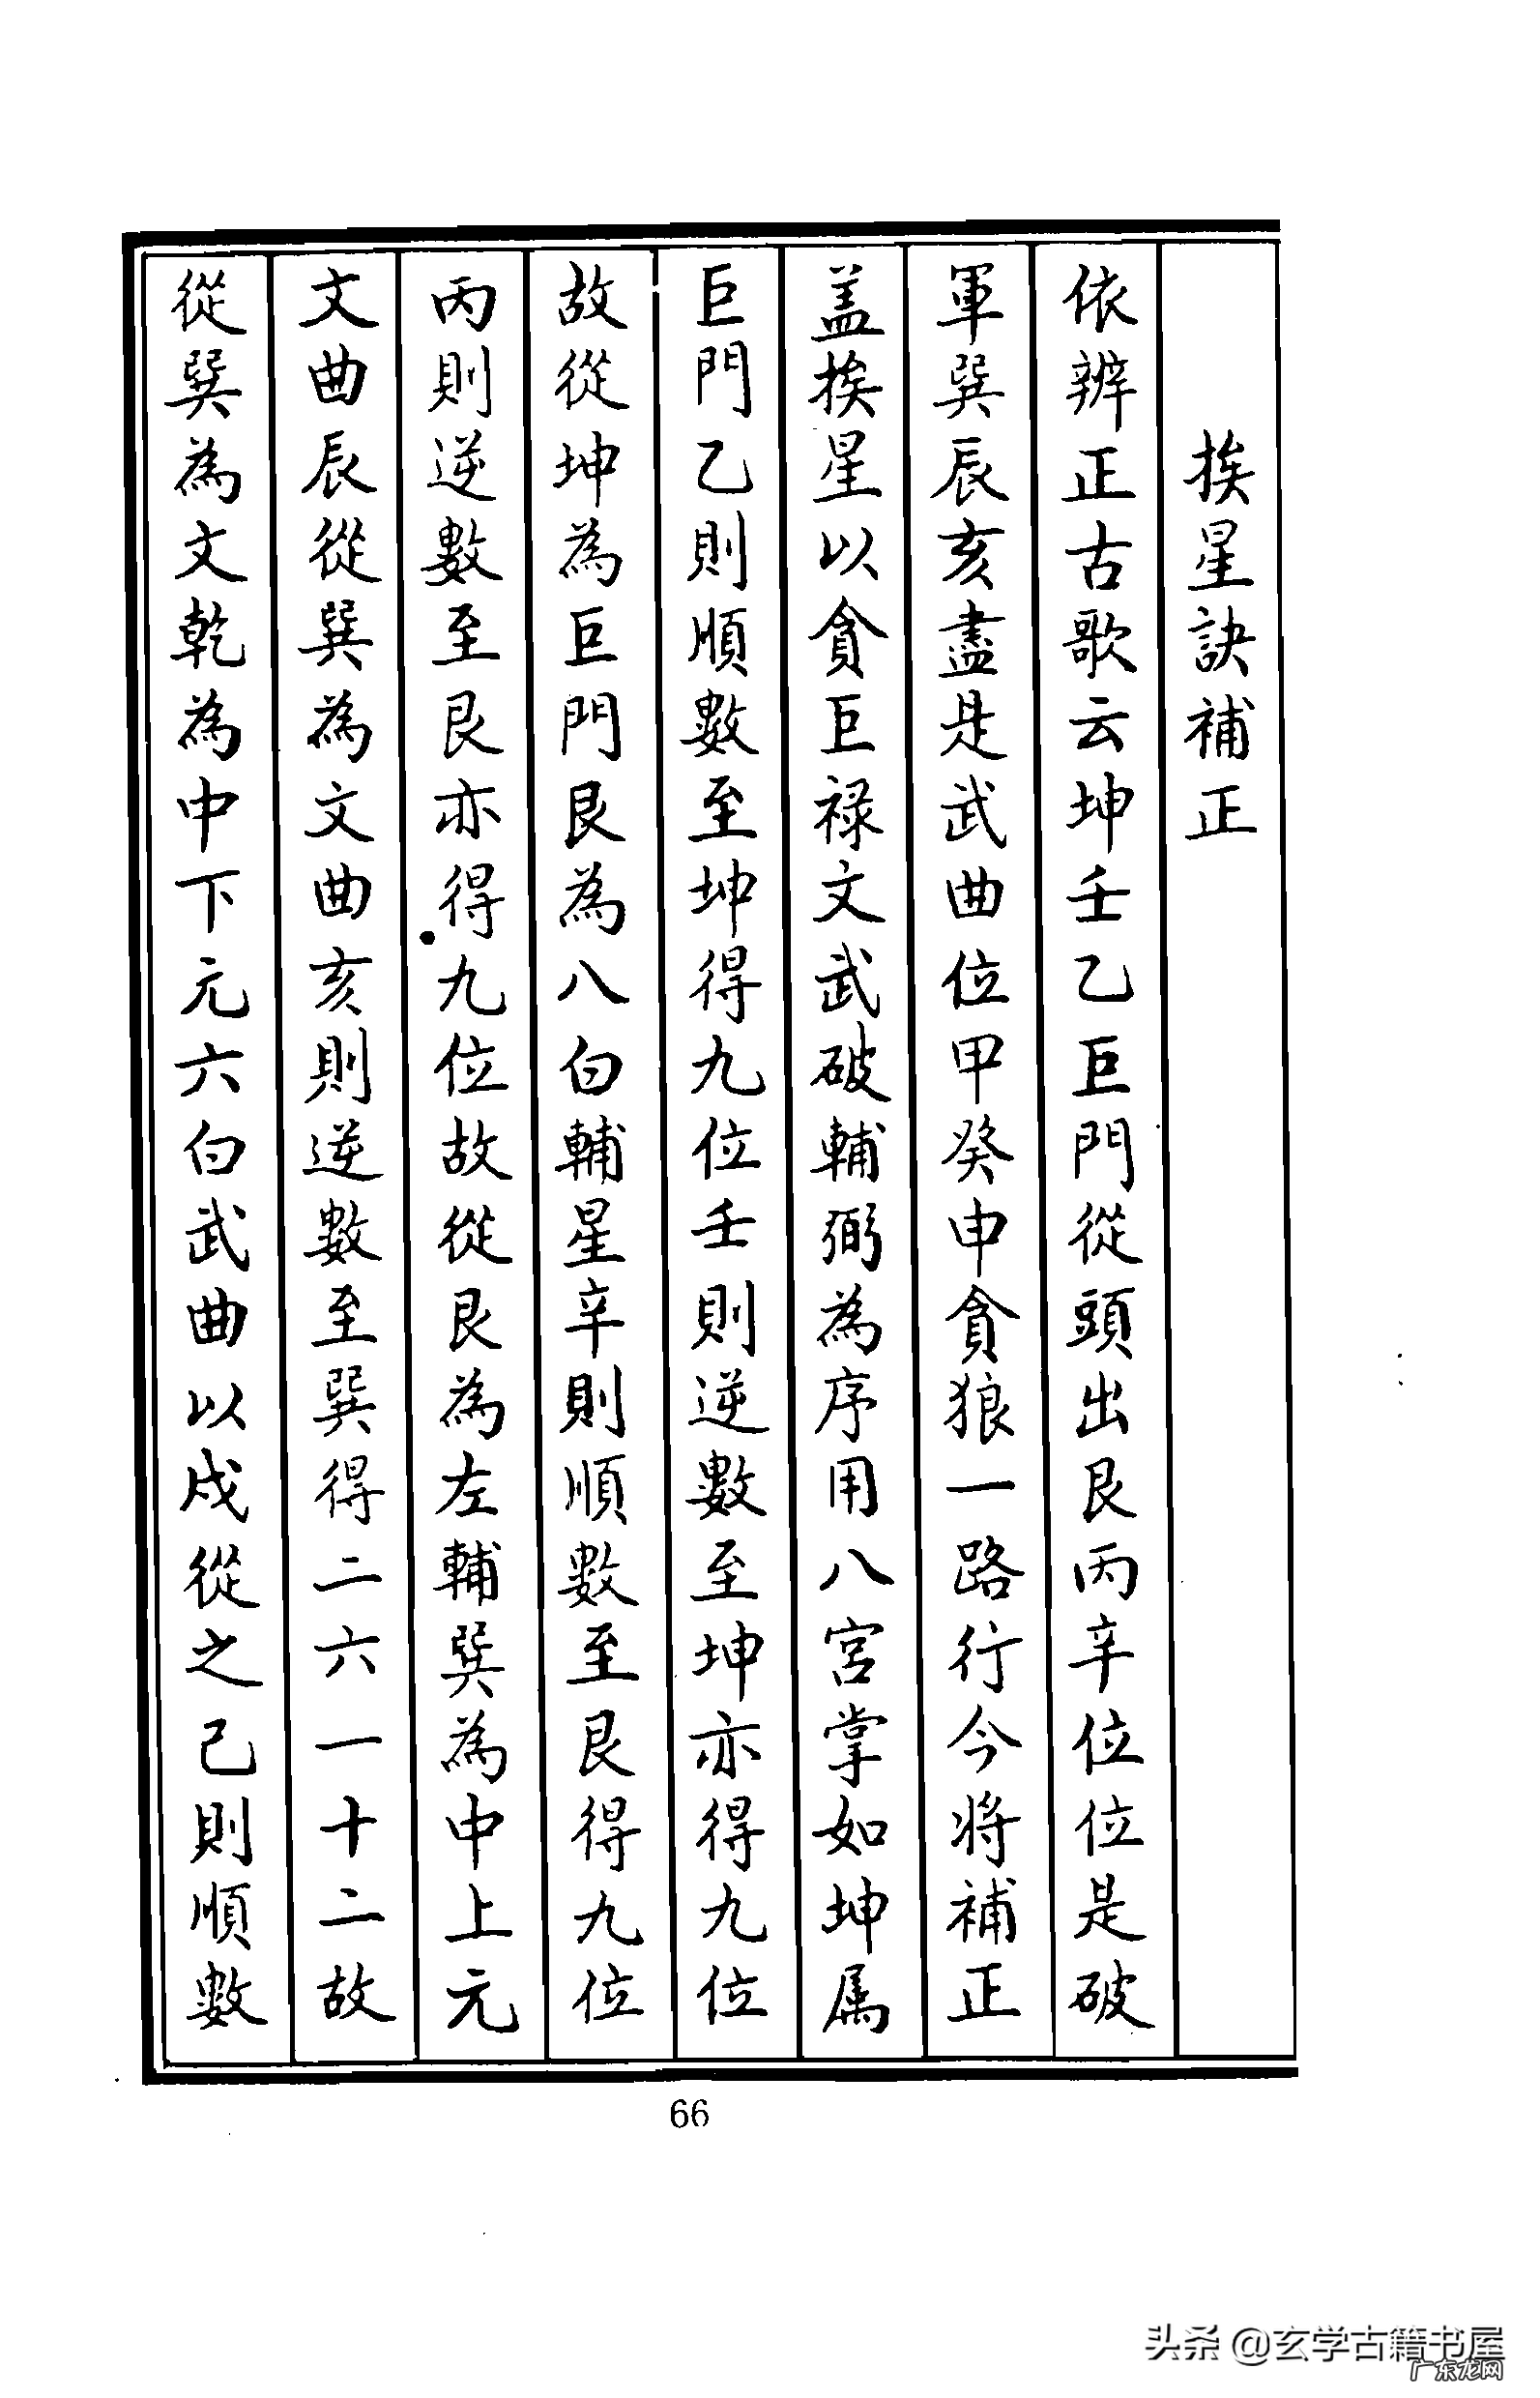 挨星訣補正
依辨正古歌云坤壬乙巨門從頭出艮丙辛位位是破
軍巽辰亥盡是武曲位甲癸申貪狼一路行今將補正
盖挨星以貪巨祿文武破輔弼為序用八宮掌如坤屬
巨門乙則順數至坤得九位壬則逆數至坤亦得九位
故從坤為巨門艮為八白輔星辛則順數至艮得九位
丙則逆數至艮亦得九位故從艮為左輔巽為中上元
文曲辰從巽為文曲亥則逆數至巽得二六一十二故
從巽為文乾為中下元六白武曲以戍從之己則順數
66
头条 @玄学古籍书屋
广东龙网